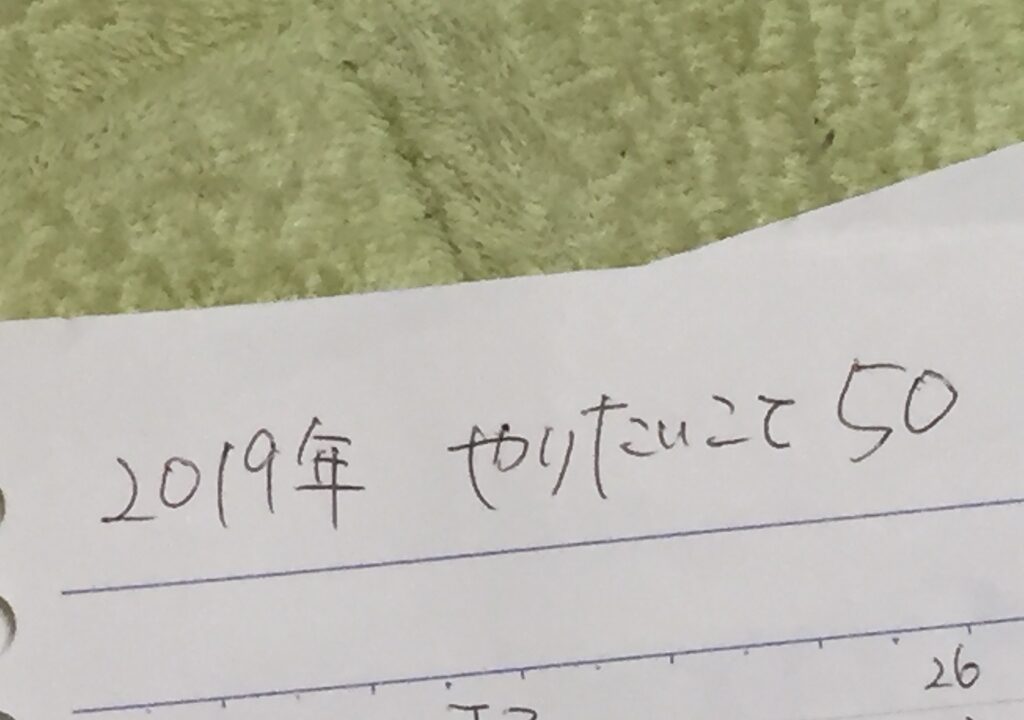 2019年 やりたいこと 50
26